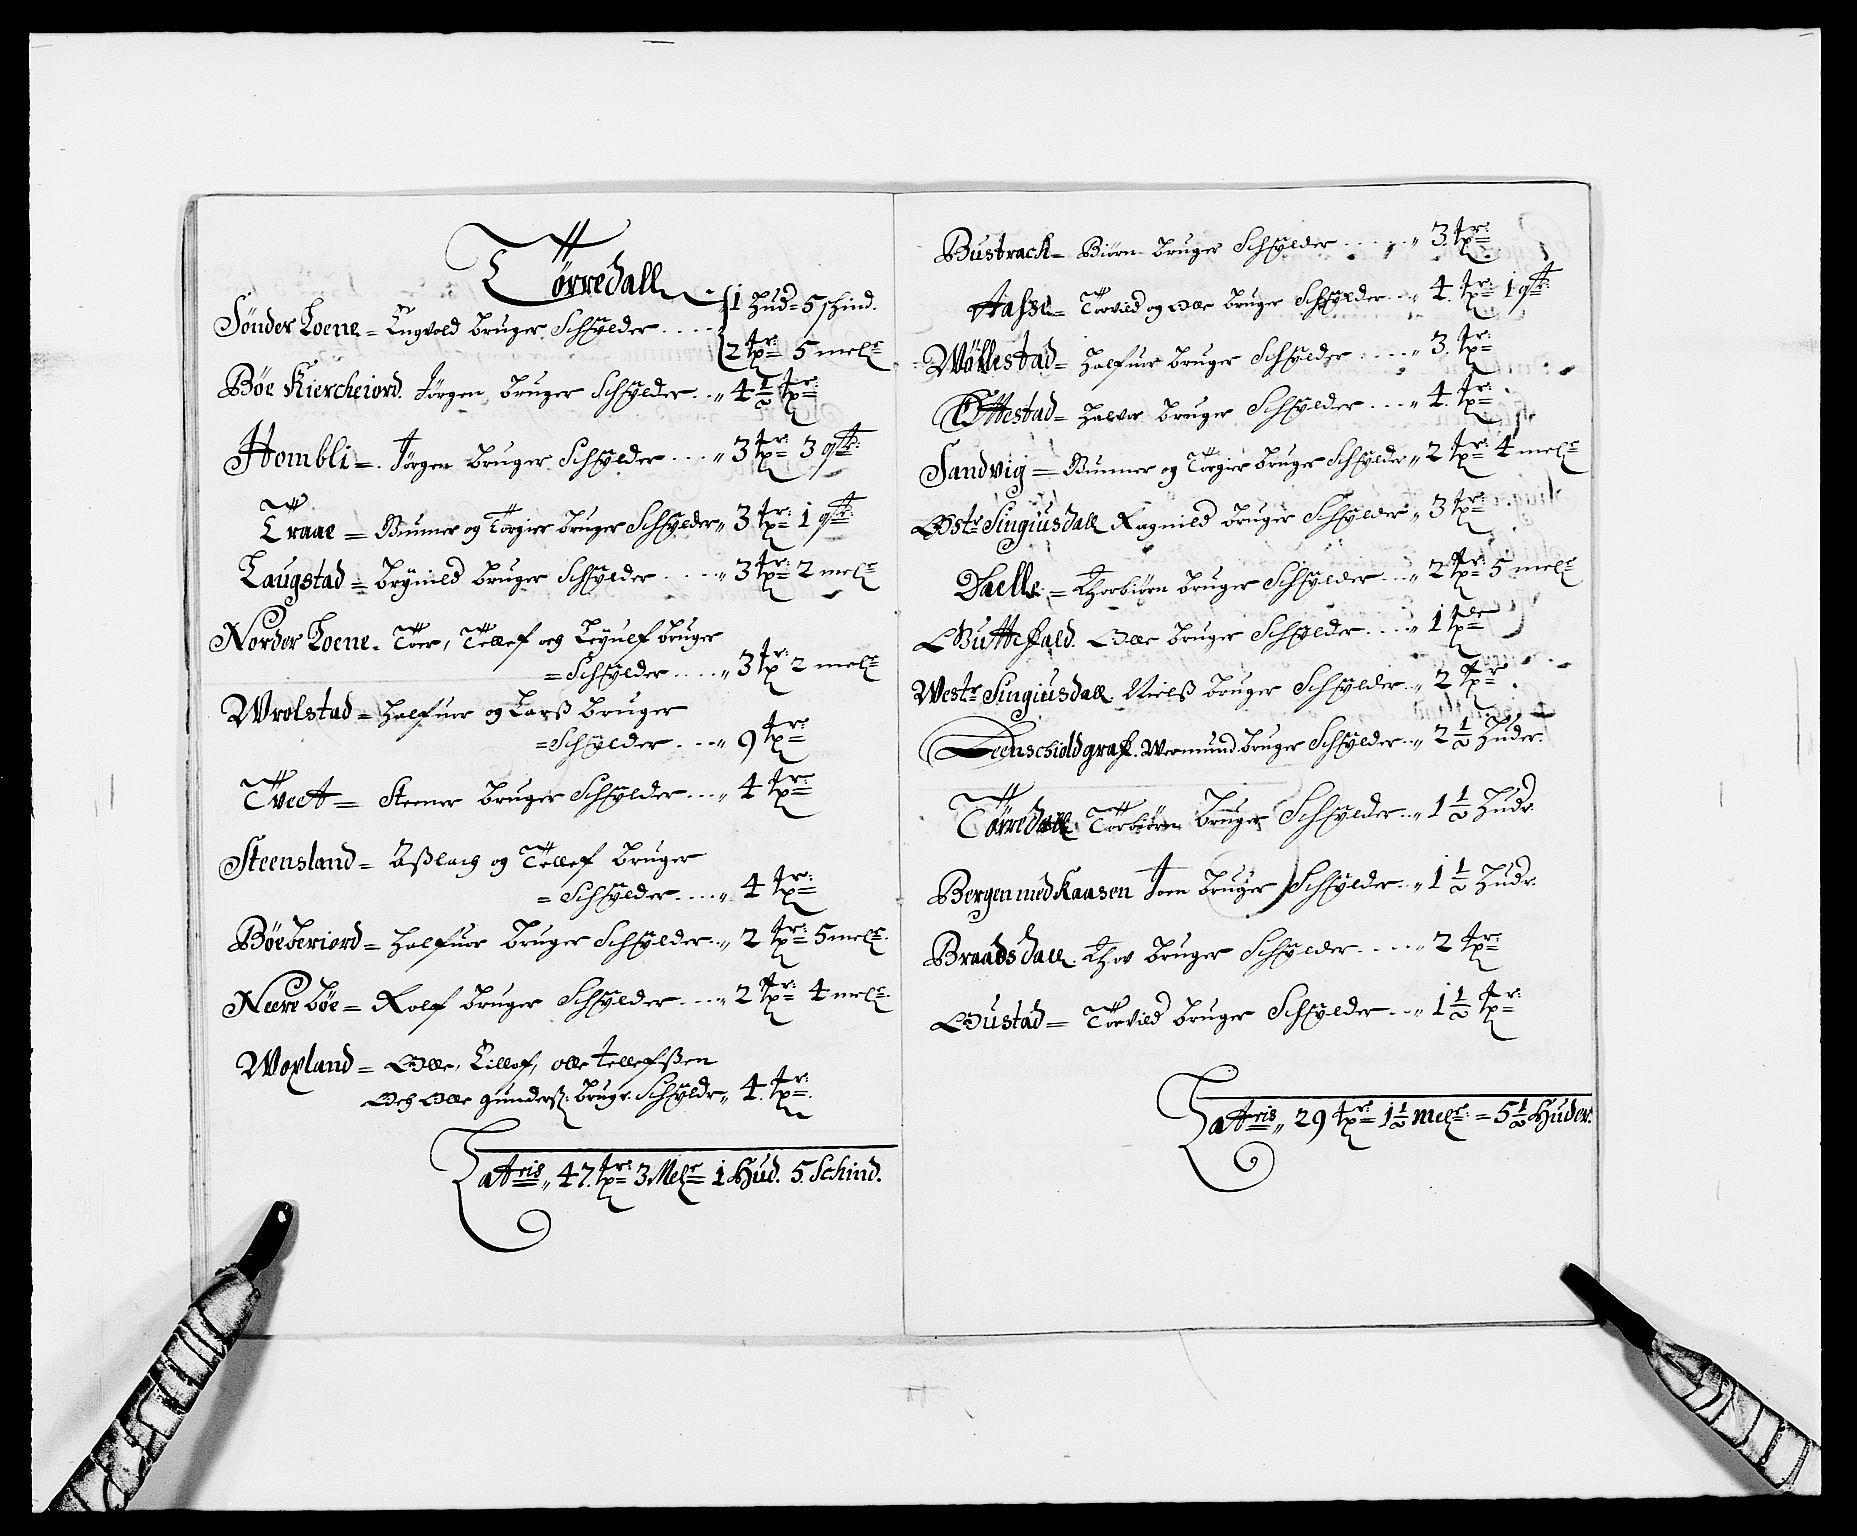 Törredall
Sönder Loene = Engvold bruger Schÿlder .... 1 Hud = 5 skind.
2 tpr: 5 melr
Böe Kiercheiord. Jörgen bruger Schÿlder .. „ 4½ tpr:
Hombli = Jörgen bruger Schÿlder .... „ 3 tpr: 3 qtr:
Traae = Gunner og Torgier bruger Schÿlder „ 3 tpr: 1 qtr:
Laugstad = Brÿnild bruger Schÿlder ..... „ 3 tpr: 2 melr
Norder Loene. Toer, Tellef oeg Leyulf bruger
= Schÿlder ..... „ 3 tpr: 2 melr
Wrolstad = Halfuor og Larß bruger
= Schÿlder .... „ 9 tpr:
Tveet = Steener bruger Schÿlder .... „ 4 tpr:
Steensland = Aßlach og Tellef bruger
= Schÿlder .... „ 4 tpr:
Böeberiord = Halfuor bruger Schÿlder .. „ 2 tpr: 5 melr.
Neere böe = Rolf bruger Schÿlder .... „ 2 tpr: 4 melr.
Woxland = Olle, Tillof, olle tellefßen
Och Olle gunderß: brugr: Schÿldr „ 4. tpr:
Latteris „ 47. tpr: 3 Melr 1 Hud. 5. Schind.
Bustrack = Biörn bruger Schÿlder ...... „ 3. tpr:
Haßel = Torvild og Olle bruger Schÿlder .. „ 4. tpr: 1 qtr:
Wöllestad = Halfuor bruger Schÿlder ..... „ 3. tpr:
Ottestad = Halvor bruger Schÿlder .... „ 4. tpr:
Sandvig = Gunner og Torgier bruger Schÿlder „ 2 tpr: 4 melr
Ostr Singiusdall Ragnild bruger Schÿlder „ 3 tpr:
Daelle = Thorbiörn bruger Schÿlder ... „ 2 tpr: 5 melr
Guttefald. Olle bruger Schÿlder .... „ 1 tpde
Westr Singiusdall. Nielß bruger Schÿlder .. „ 2 tpr
Deenschioldgraf. Wermund bruger Schÿlder .. „ 2½ Huder.
Törredall Torbiörn bruger Schÿlder .. „ 1½ Hudr.
Bergen med Kaasen Joen bruger Schÿlder .. „ 1½ Hudr.
Braadsdall. Thor bruger Schÿlder ..... „ 2 tpr:
Gustad = Torvild bruger Schÿlder .. „ 1½ tpr:
Latteris „ 29 tpr: 1½ melr: = 5½ Huder.